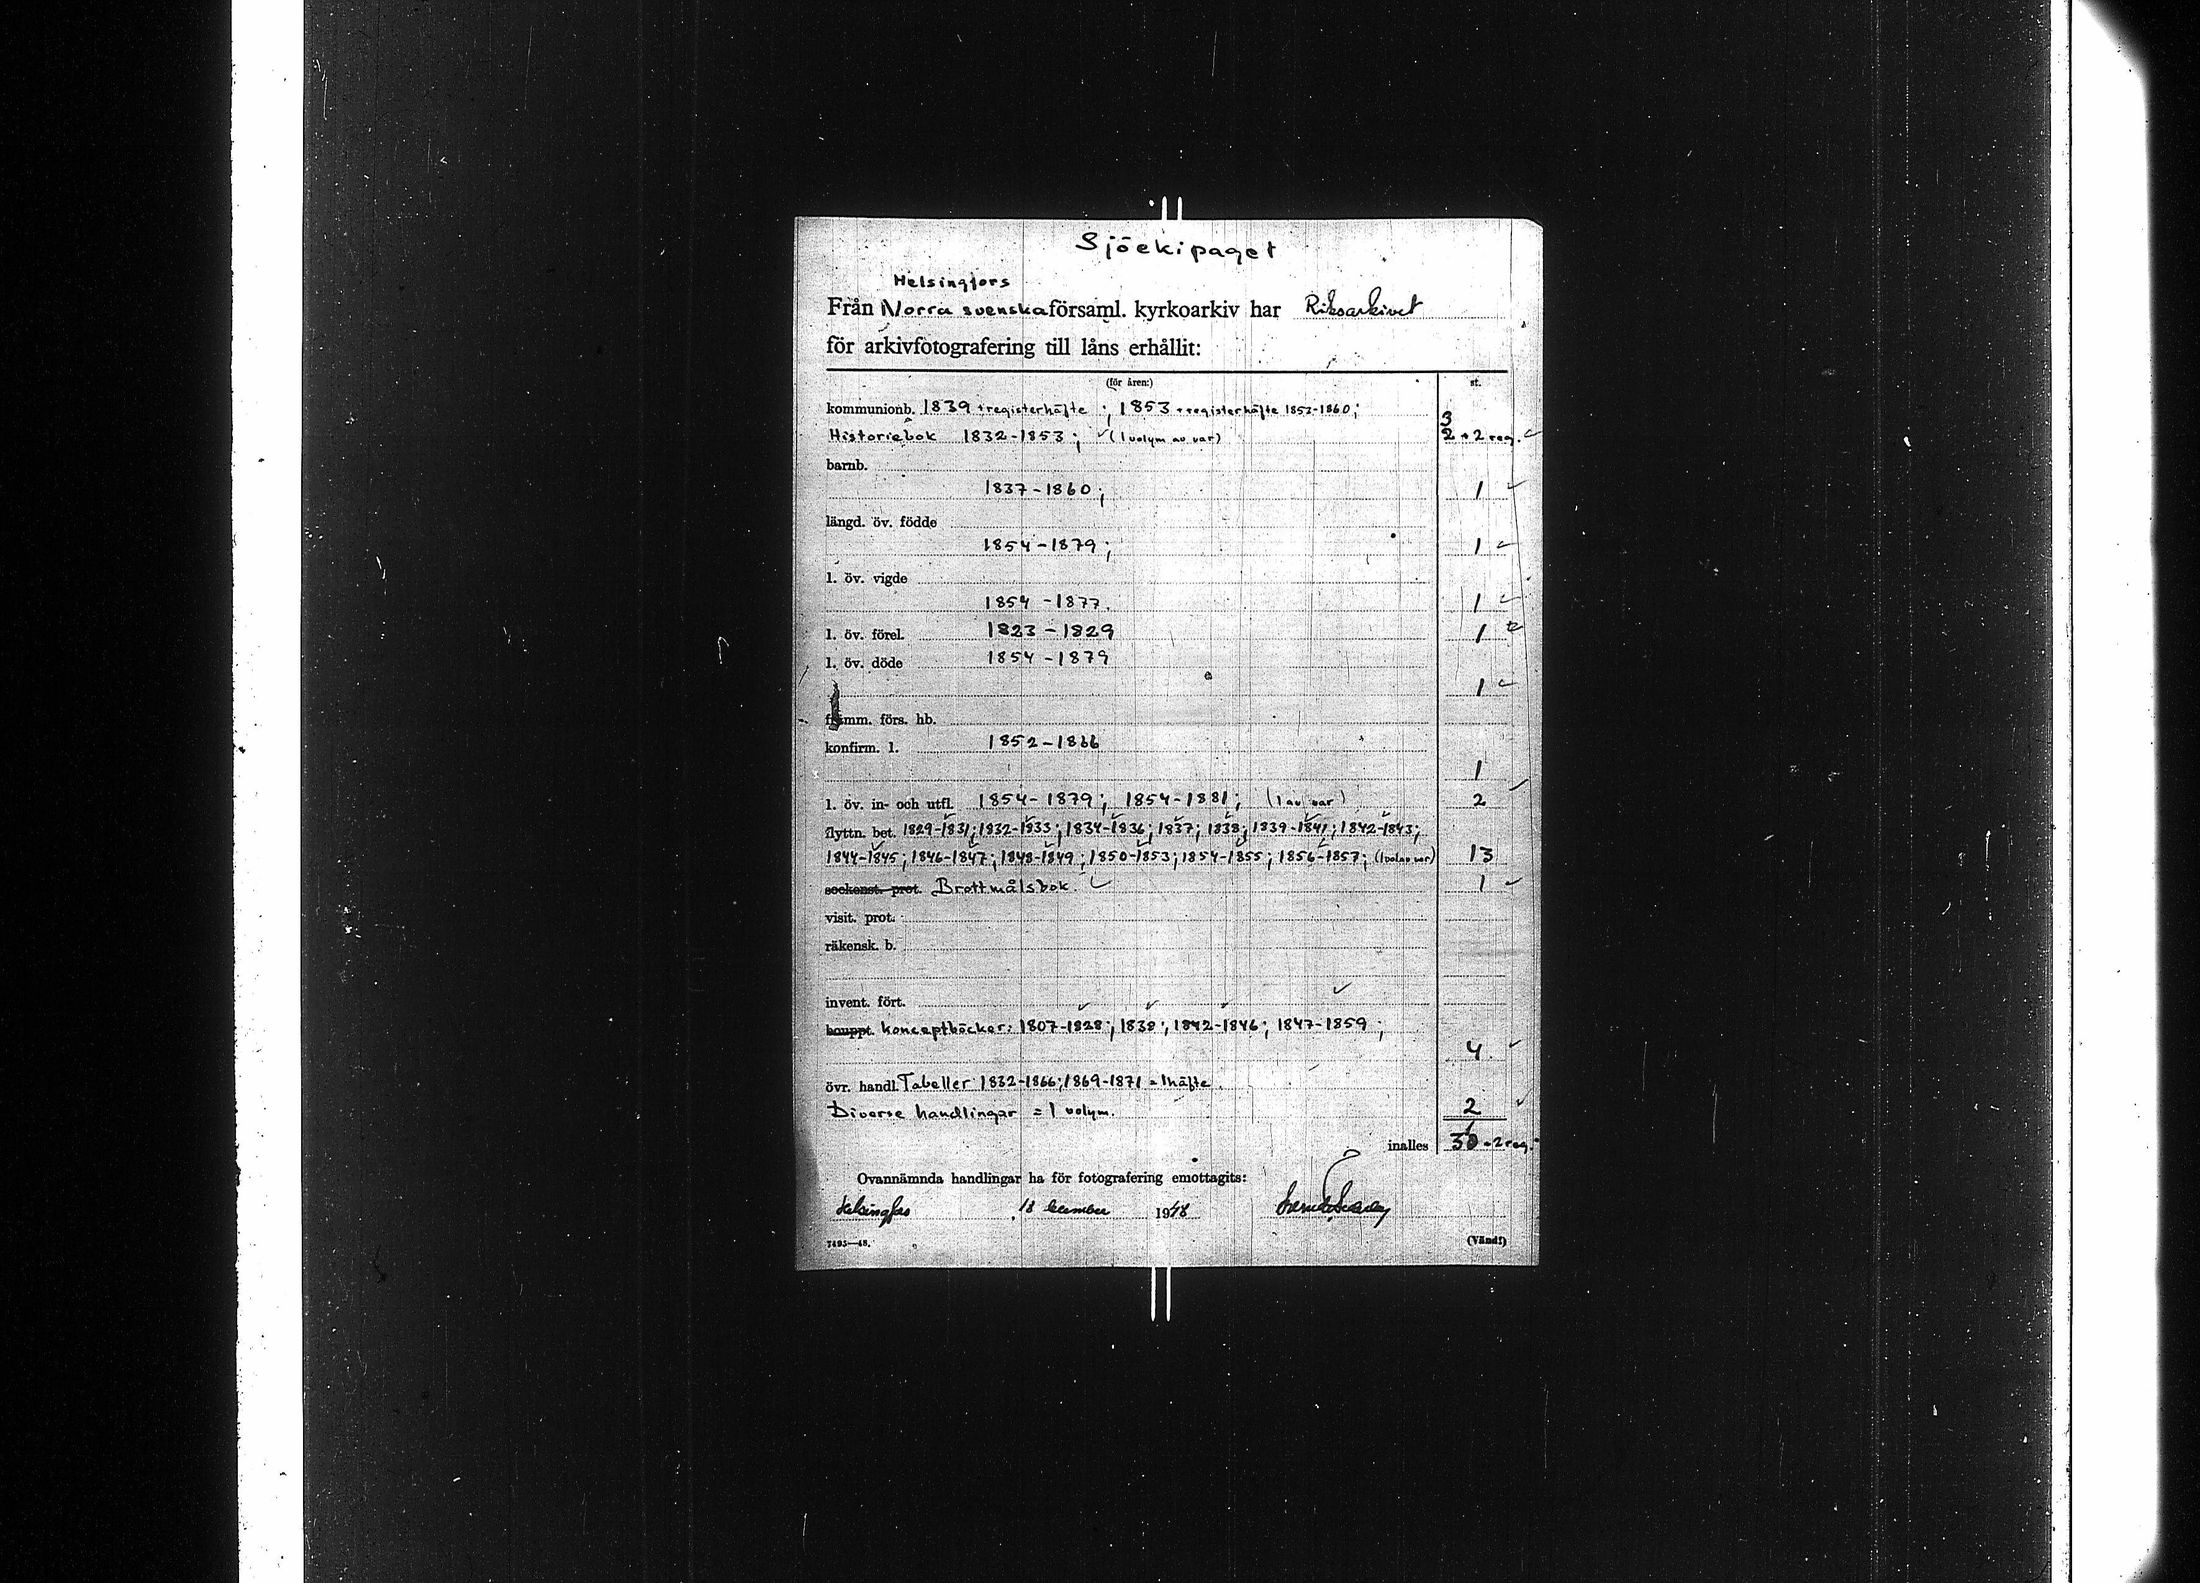 Sjöekipaget
Helsingfors
Från Norra svenska församl. kyrkoarkiv har Riksarkivet
för arkivfotografering till låns erhållit:
(för åren:) st.
kommunionb. 1839 + registerhäfte ; 1853 + registerhäfte 1853-1860 ; 3
Historiebok 1832-1853 ; (1 volym av var) 2 + 2 reg.
barnb.
1837-1860 ; 1
längd. öv. födde
1854-1879 ; 1
l. öv. vigde
1854-1877. 1
l. öv. förel. 1823-1829 1
l. öv. döde 1854-1879
1
främm. förs. hb.
konfirm. l. 1852-1866
1
l. öv. in- och utfl. 1854-1879 ; 1854-1881 ; (1 av var) 2
flyttn. bet. 1829-1831 ; 1832-1833 ; 1834-1836 ; 1837 ; 1838 ; 1839-1841 ; 1842-1843 ;
1844-1845 ; 1846-1847 ; 1848-1849 ; 1850-1853 ; 1854-1855 ; 1856-1857 ; (1 vol av var) 13
sockenst. prot. Brottmålsbok. 1
visit. prot.
räkensk. b.
invent. fört.
bouppt. Konceptböcker: 1807-1828 ; 1838 ; 1842-1846 ; 1847-1859 ;
4
övr. handl. Tabeller 1832-1866 ; 1869-1871 = 1 häfte.
Diverse handlingar = 1 volym. 2
inalles 30 + 2 reg.
Ovannämnda handlingar ha för fotografering emottagits:
Helsingfors 18 december 1948
7495—48. (Vänd!)